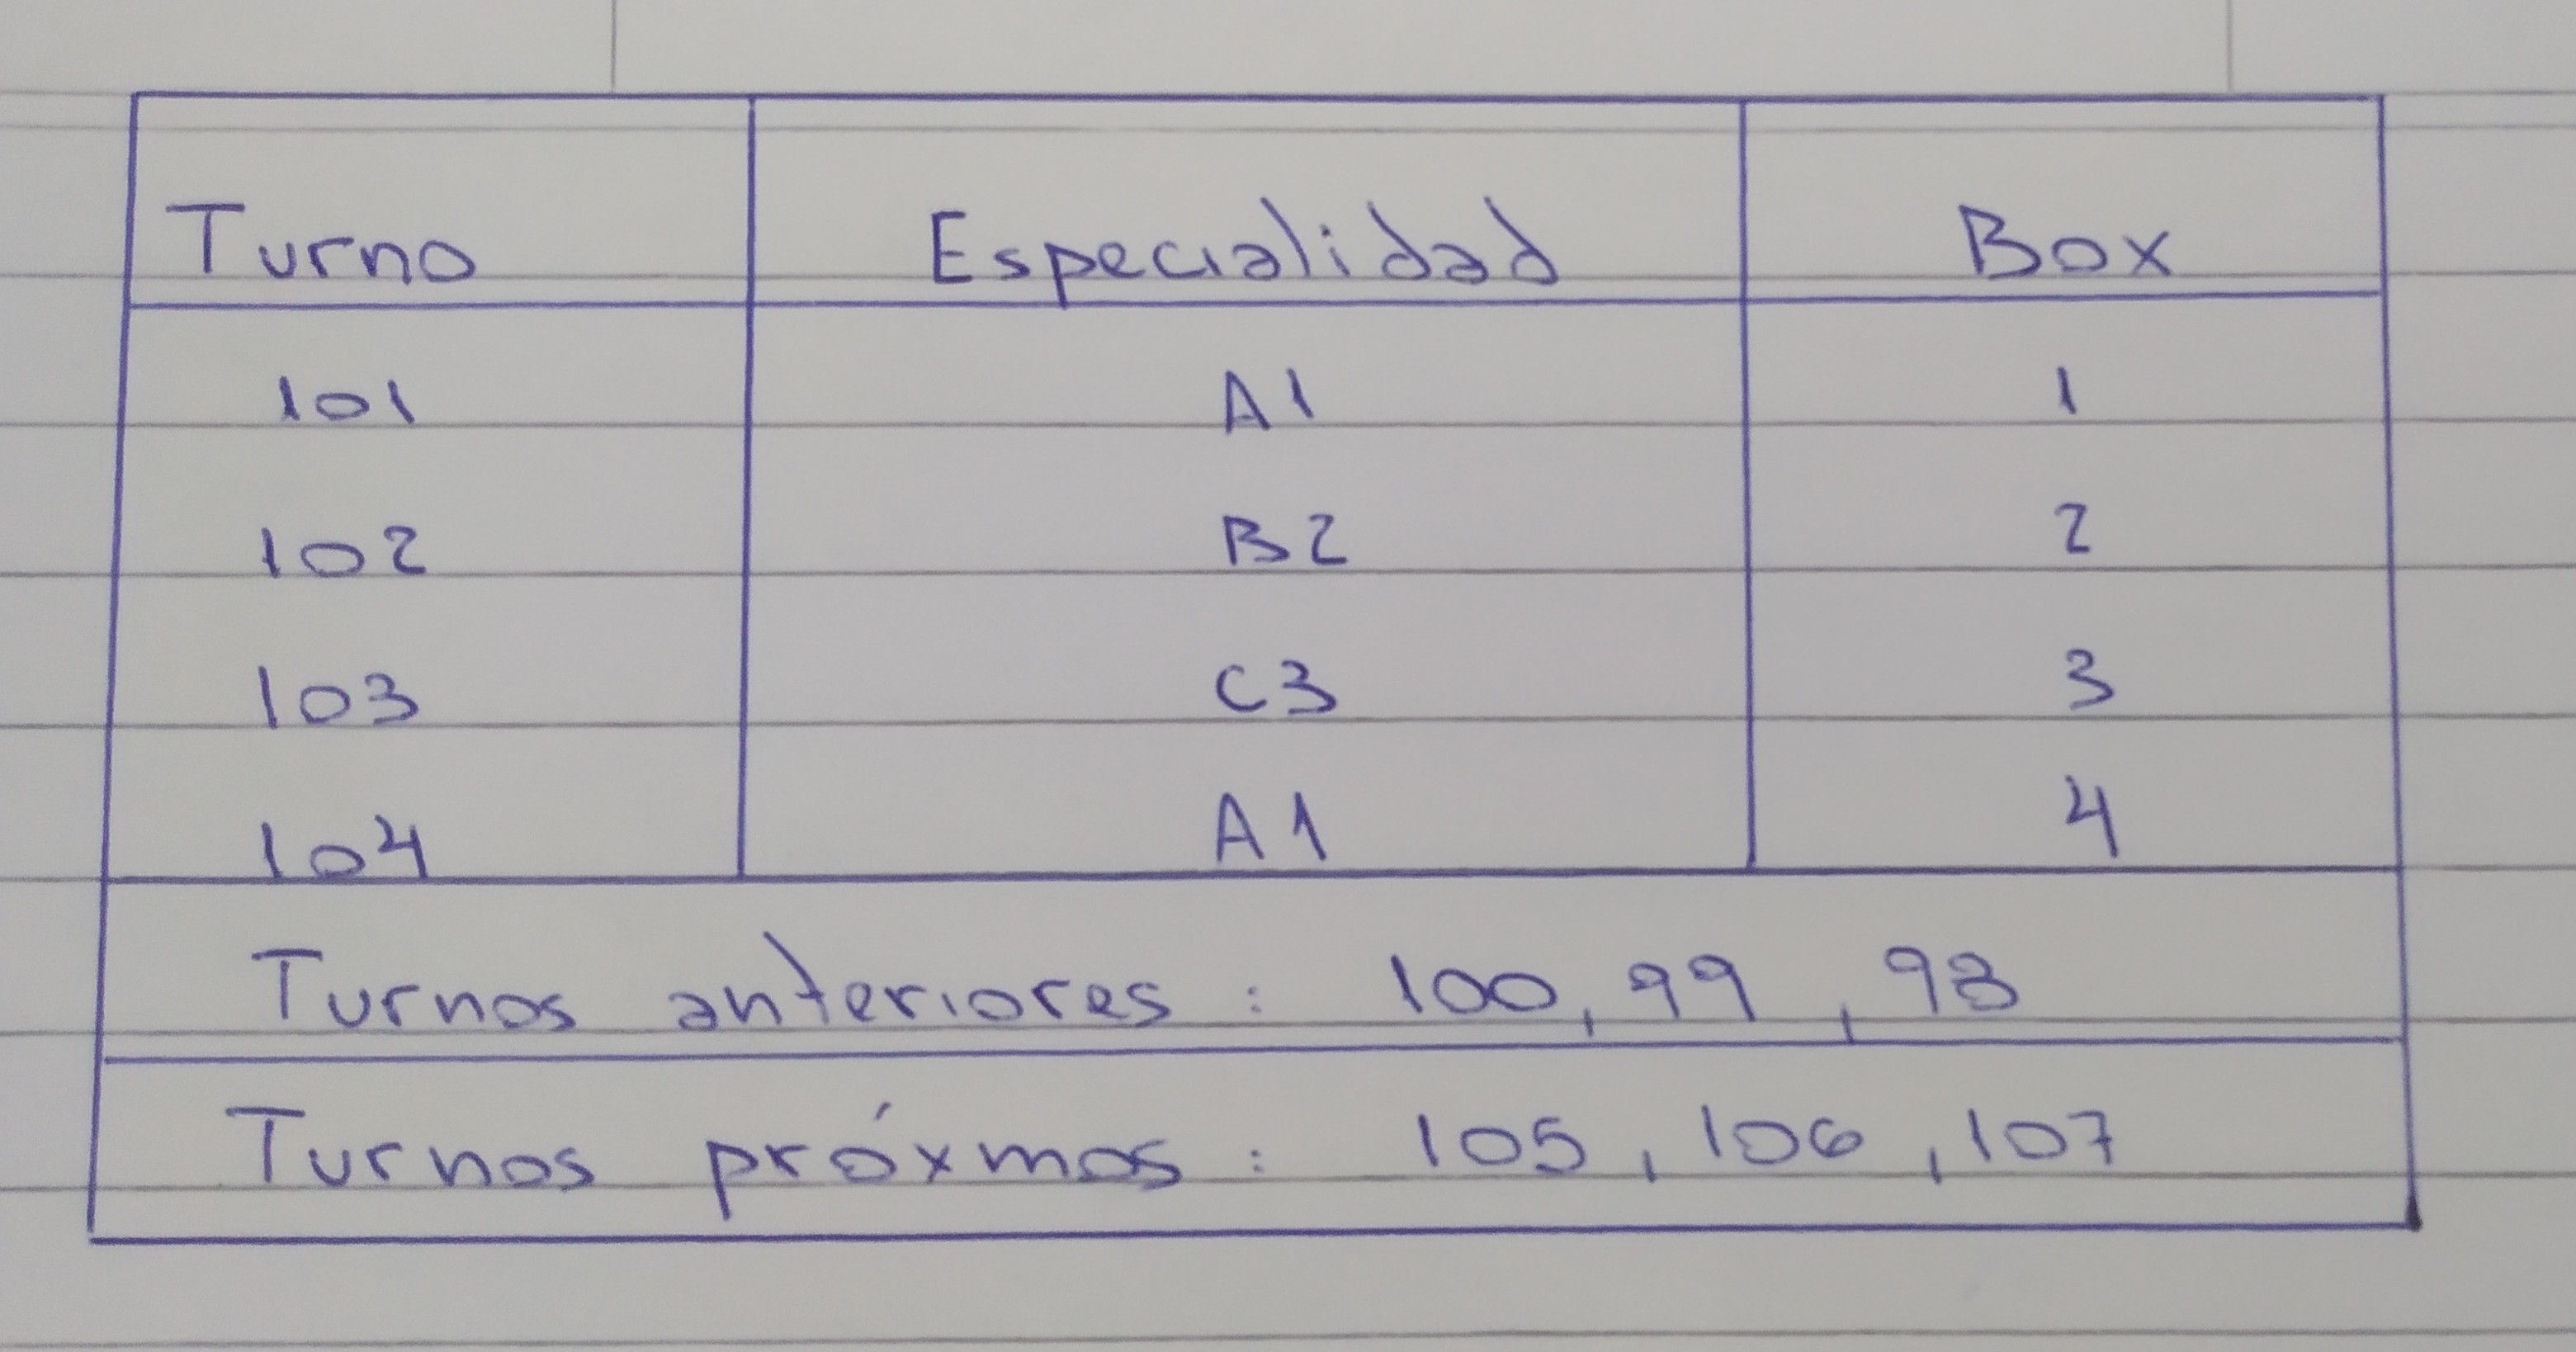 Turno Especialidad Box
101 A1 1
102 B2 2
103 C3 3
104 A1 4
Turnos anteriores : 100, 99 , 98
Turnos próxmos : 105 , 106 , 107